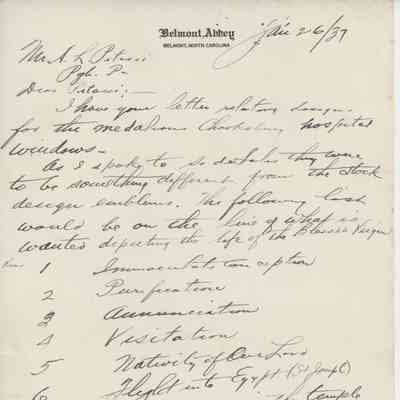 Belmont Abbey
BELMONT, NORTH CAROLINA
Jan 26/37
Mr A. L Pitassi
Pgh. Pa
Dear Pitassi; —
I have your letter relating designs
for the medalions Charleston hospital
windows —
As I spoke to they were
to be something different from the stock
design emblems. The following list
would be on the line of what is
wanted depicting the life of the Blessed Virgin
1 Immaculate Conception
2 Purification
3 Annunciation
4 Visitation
5 Nativity of Our Lord
6 Flight into Egypt (St Joseph)
the temple